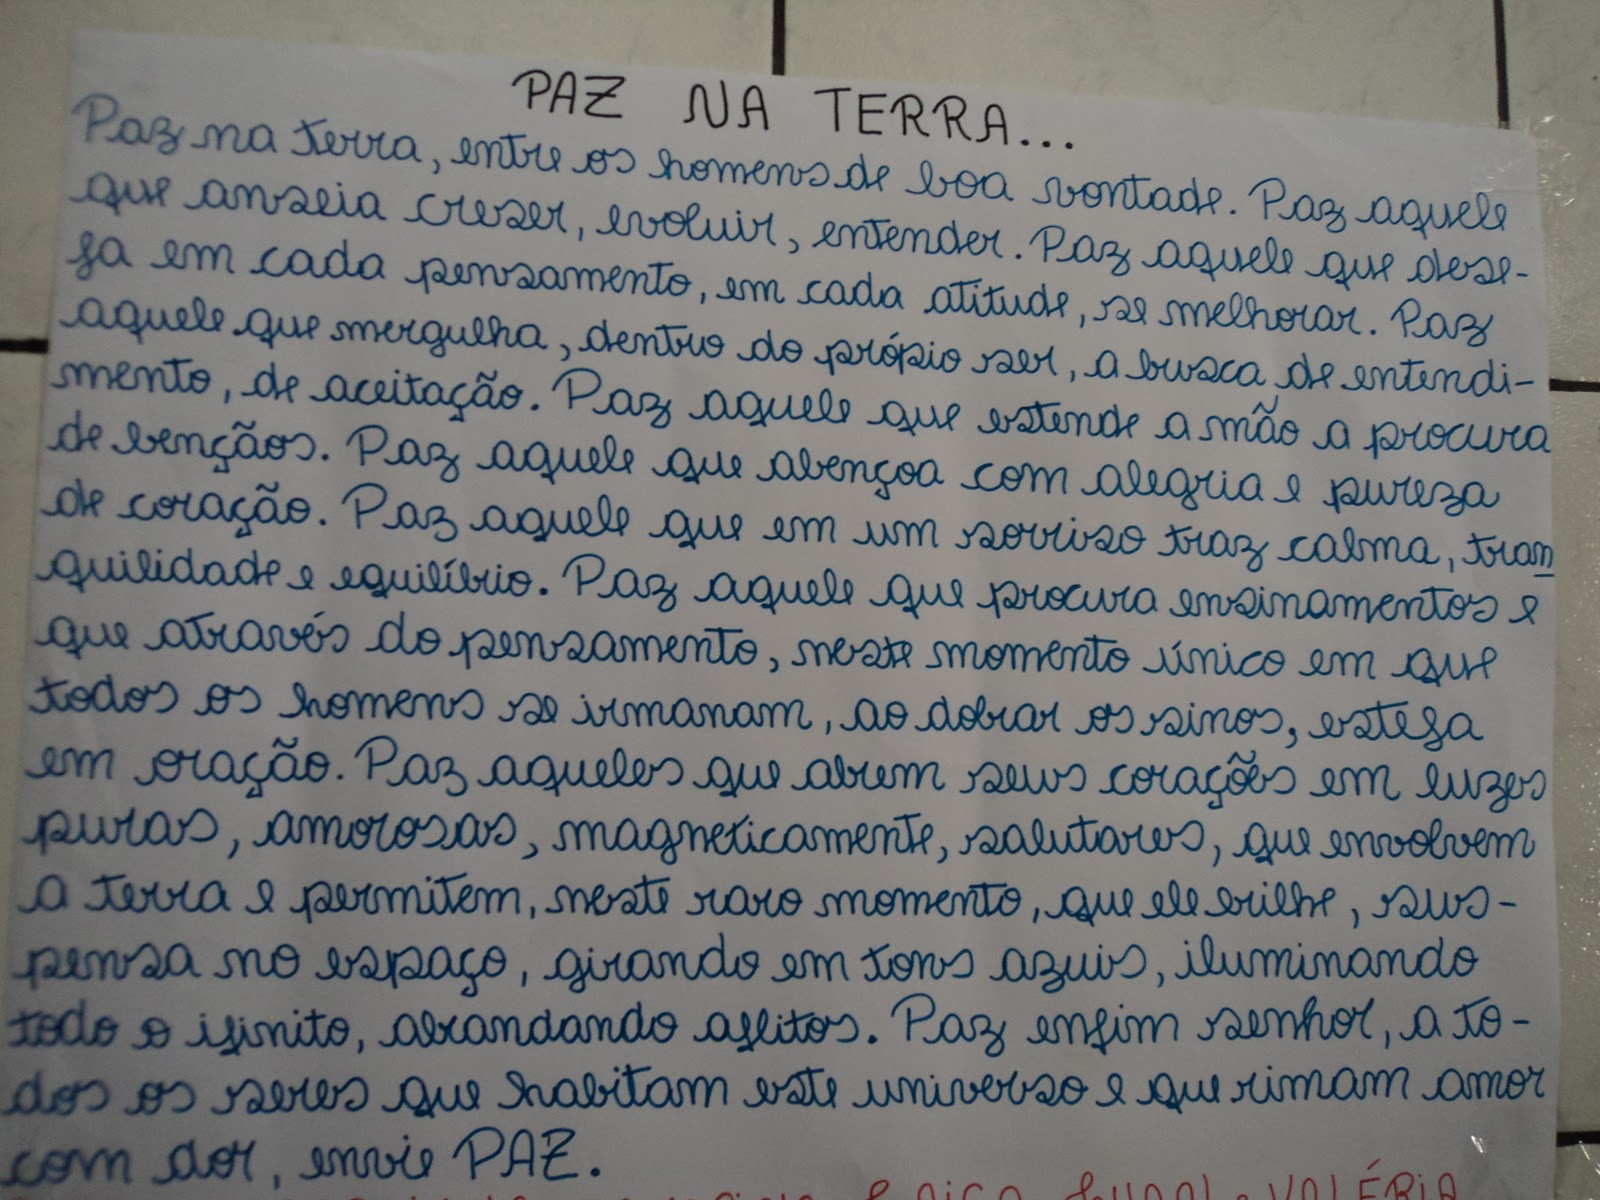 PAZ NA TERRA...
Paz na terra, entre os homens de boa vontade. Paz aquele
que anseia creser, evoluir, entender. Paz aquele que dese-
ja em cada pensamento, em cada atitude, se melhorar. Paz
aquele que mergulha, dentro do própio ser, a busca de entendi-
mento, de aceitação. Paz aquele que estende a mão a procura
de bençãos. Paz aquele que abençoa com alegria e pureza
de coração. Paz aquele que em um sorriso traz calma, tran
quilidade e equilíbrio. Paz aquele que procura ensinamentos e
que através do pensamento, neste momento único em que
todos os homens se irmanam, ao dobrar os sinos, esteja
em oração. Paz aqueles que abrem seus corações em luzes
puras, amorosas, magneticamente, salutares, que envolvem
a terra e permitem, neste raro momento, que ele brilhe, sus-
pensa no espaço, girando em tons azuis, iluminando
todo o ifinito, abrandando aflitos. Paz enfim senhor, a to-
dos os seres que habitam este universo e que rimam amor
com dor, envie PAZ.
VALÉRIA